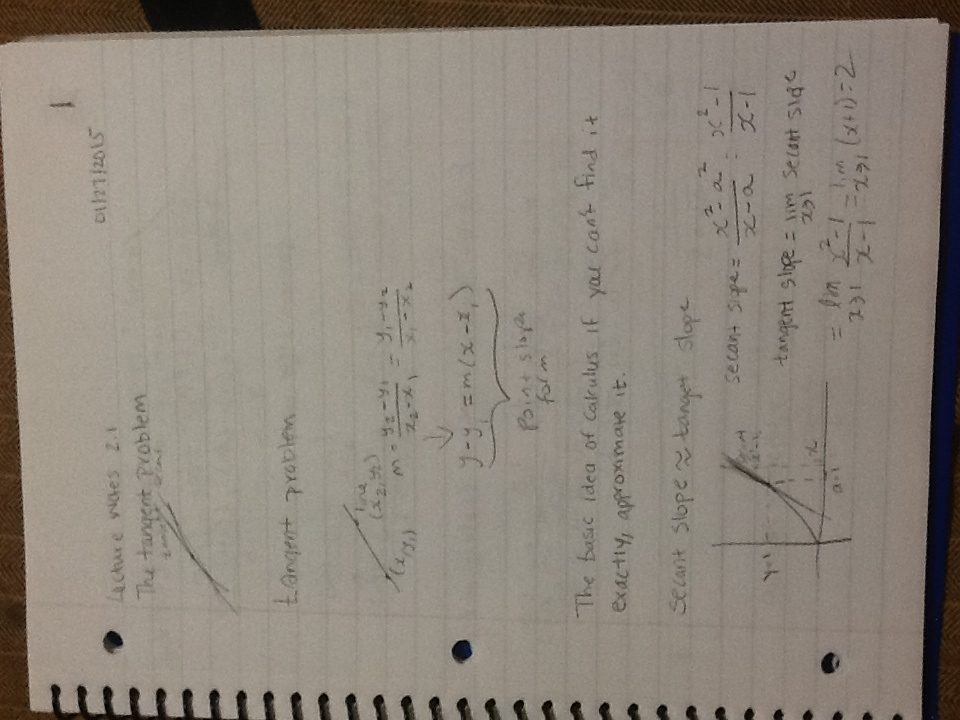 01/27/2015 1
Lecture notes 2.1
The tangent problem
tangent problem
line
(x₂,y₂)
(x,y₁)
m = y₂-y₁/x₂-x₁ = y₁-y₂/x₁-x₂
y-y₁ = m(x-x₁)
point slope
form
The basic idea of calculus if you can't find it
exactly, approximate it.
secant slope ≈ tanget slope
secant slope = x²-a²/x-a : x²-1/x-1
y=1
x
a=1
tangent slope = lim x→1 secant slope
= lim x→1 x²-1/x-1 = lim x→1 (x+1)=2